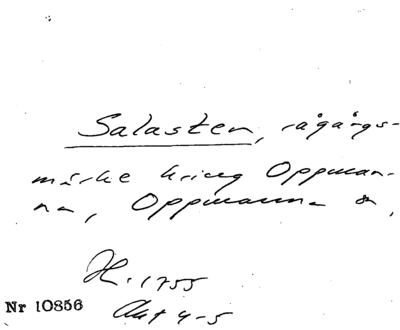 Salasten, rågångs-
märke kring Oppman-
na, Oppmanna s,
H. 1755
Akt 4-5
Nr 10856